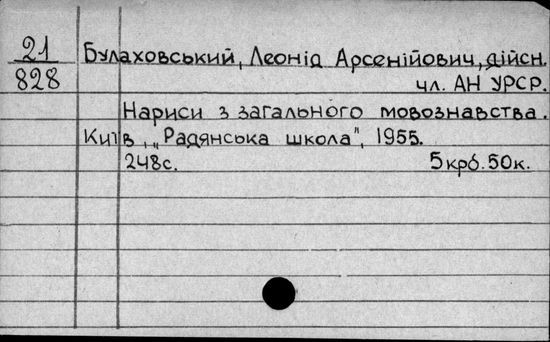 21
828
Булаховський, Леонід Арсенійович, дійсн.
чл. АН УРСР.
Нариси з загального мовознавства.
Київ, „Радянська школа", 1955.
248с. 5крб.50к.